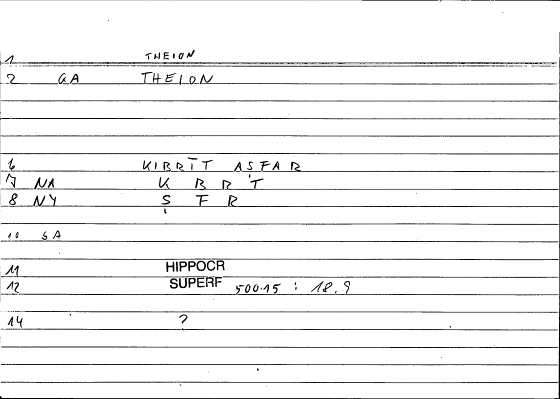 1 THEION
2 GA THEION
6 KIBRĪT AṢFAR
7 NA K B R T
8 NY Ṣ F R
10 SA
11 HIPPOCR
12 SUPERF 500.15 : 18.9
14 ?